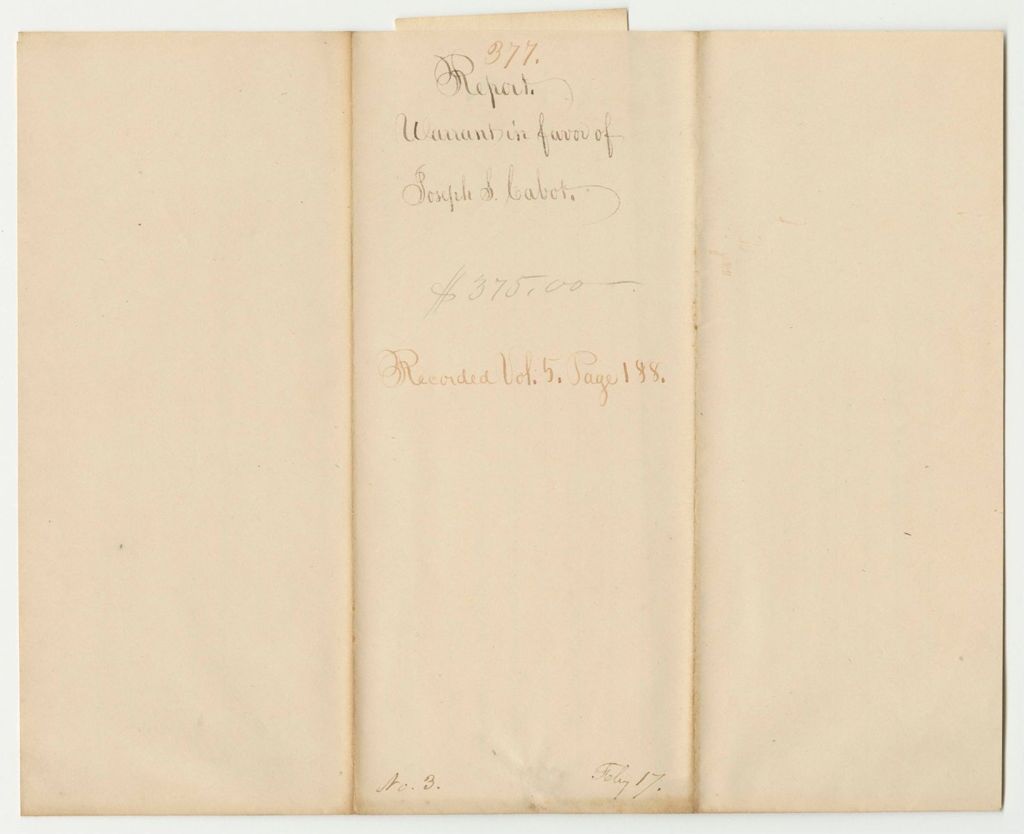 377.
Report.
Warrant in favor of
Joseph S. Cabot.
$375.00
Recorded Vol. 5. Page 188.
No. 3. Feby 17.